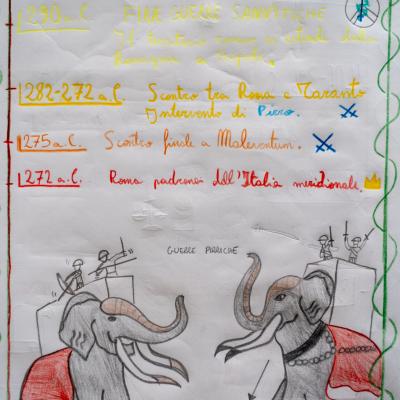 290 a.C. FINE GUERRE SANNITICHE
Il territorio romano si estende dalla
Romagna a Napoli.
282-272 a.C. Scontro tra Roma e Taranto
Intervento di Pirro.
275 a.C. Scontro finale a Maleventum.
272 a.C. Roma padrona dell'Italia meridionale.
GUERRE PIRRICHE